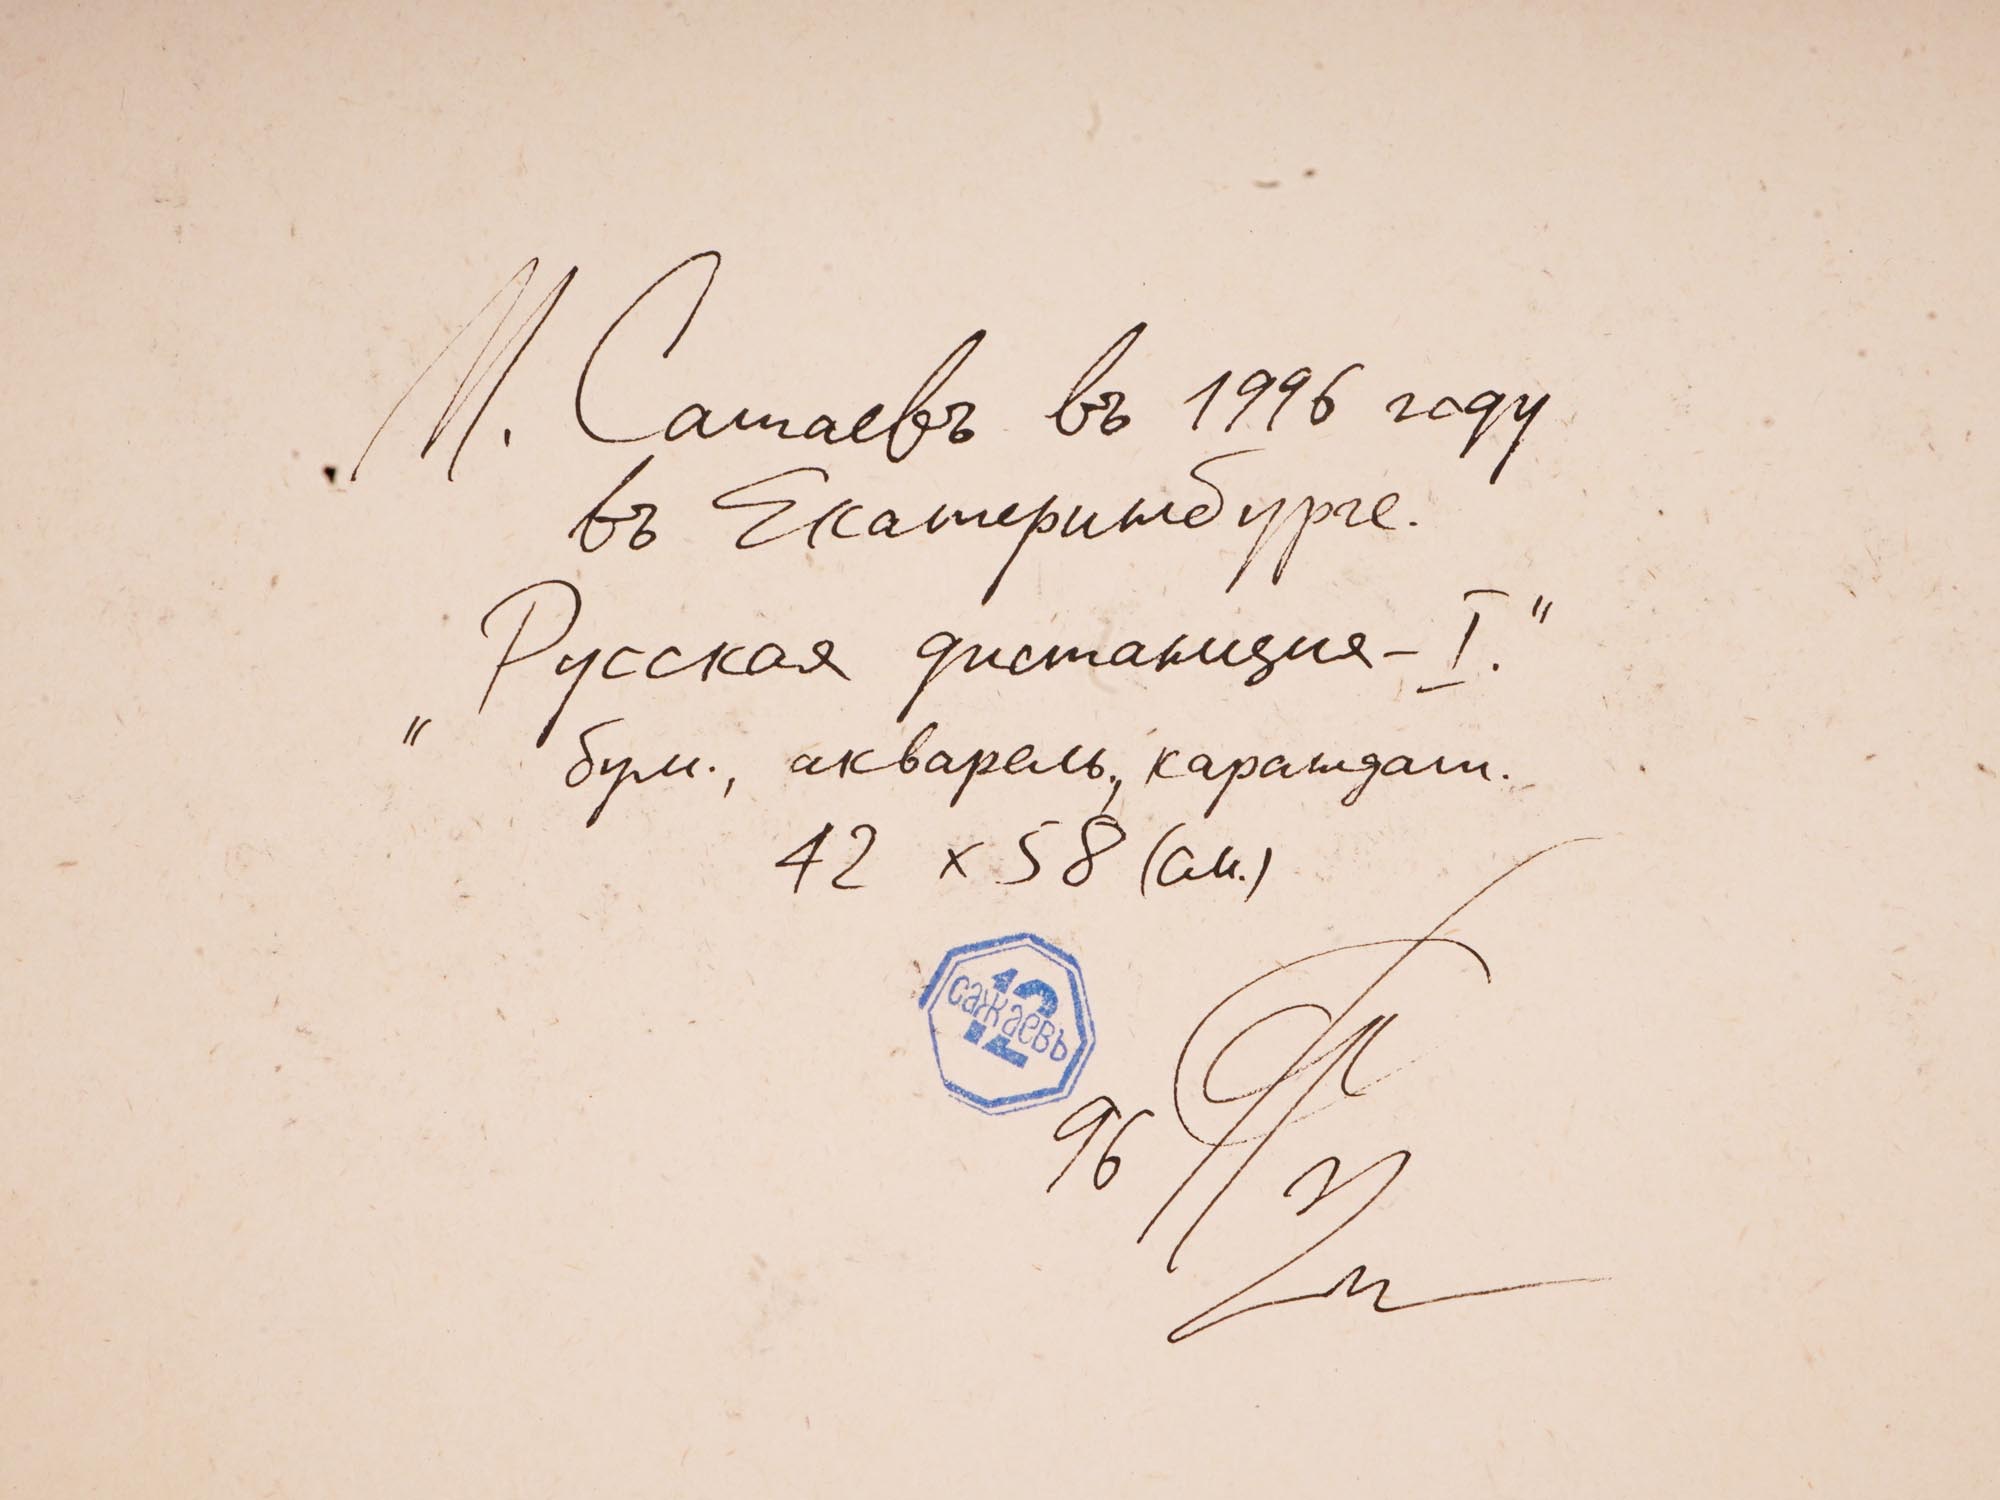 М. Сажаевъ въ 1996 году
въ Екатеринбурге.
Русская дистанция - I."
" бум., акварель., карандаш.
42 x 58 (см.)
12
сажаевъ
96